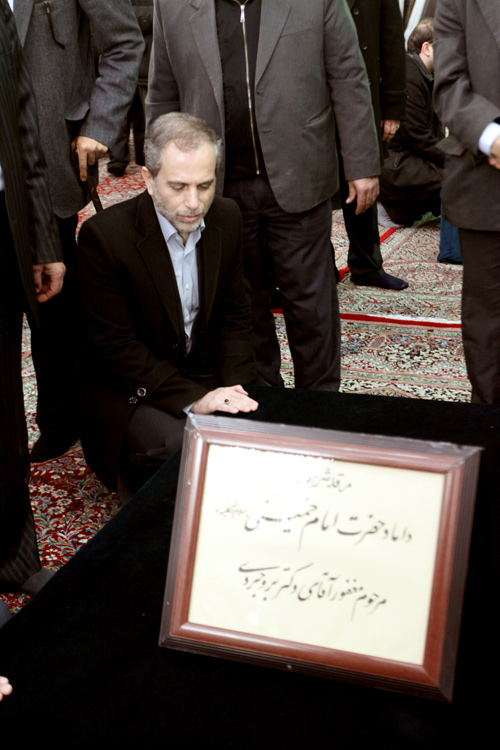 مرقد شریف
داماد حضرت امام خمینی سلام الله علیه
مرحوم مغفور آقای دکتر بروجردی